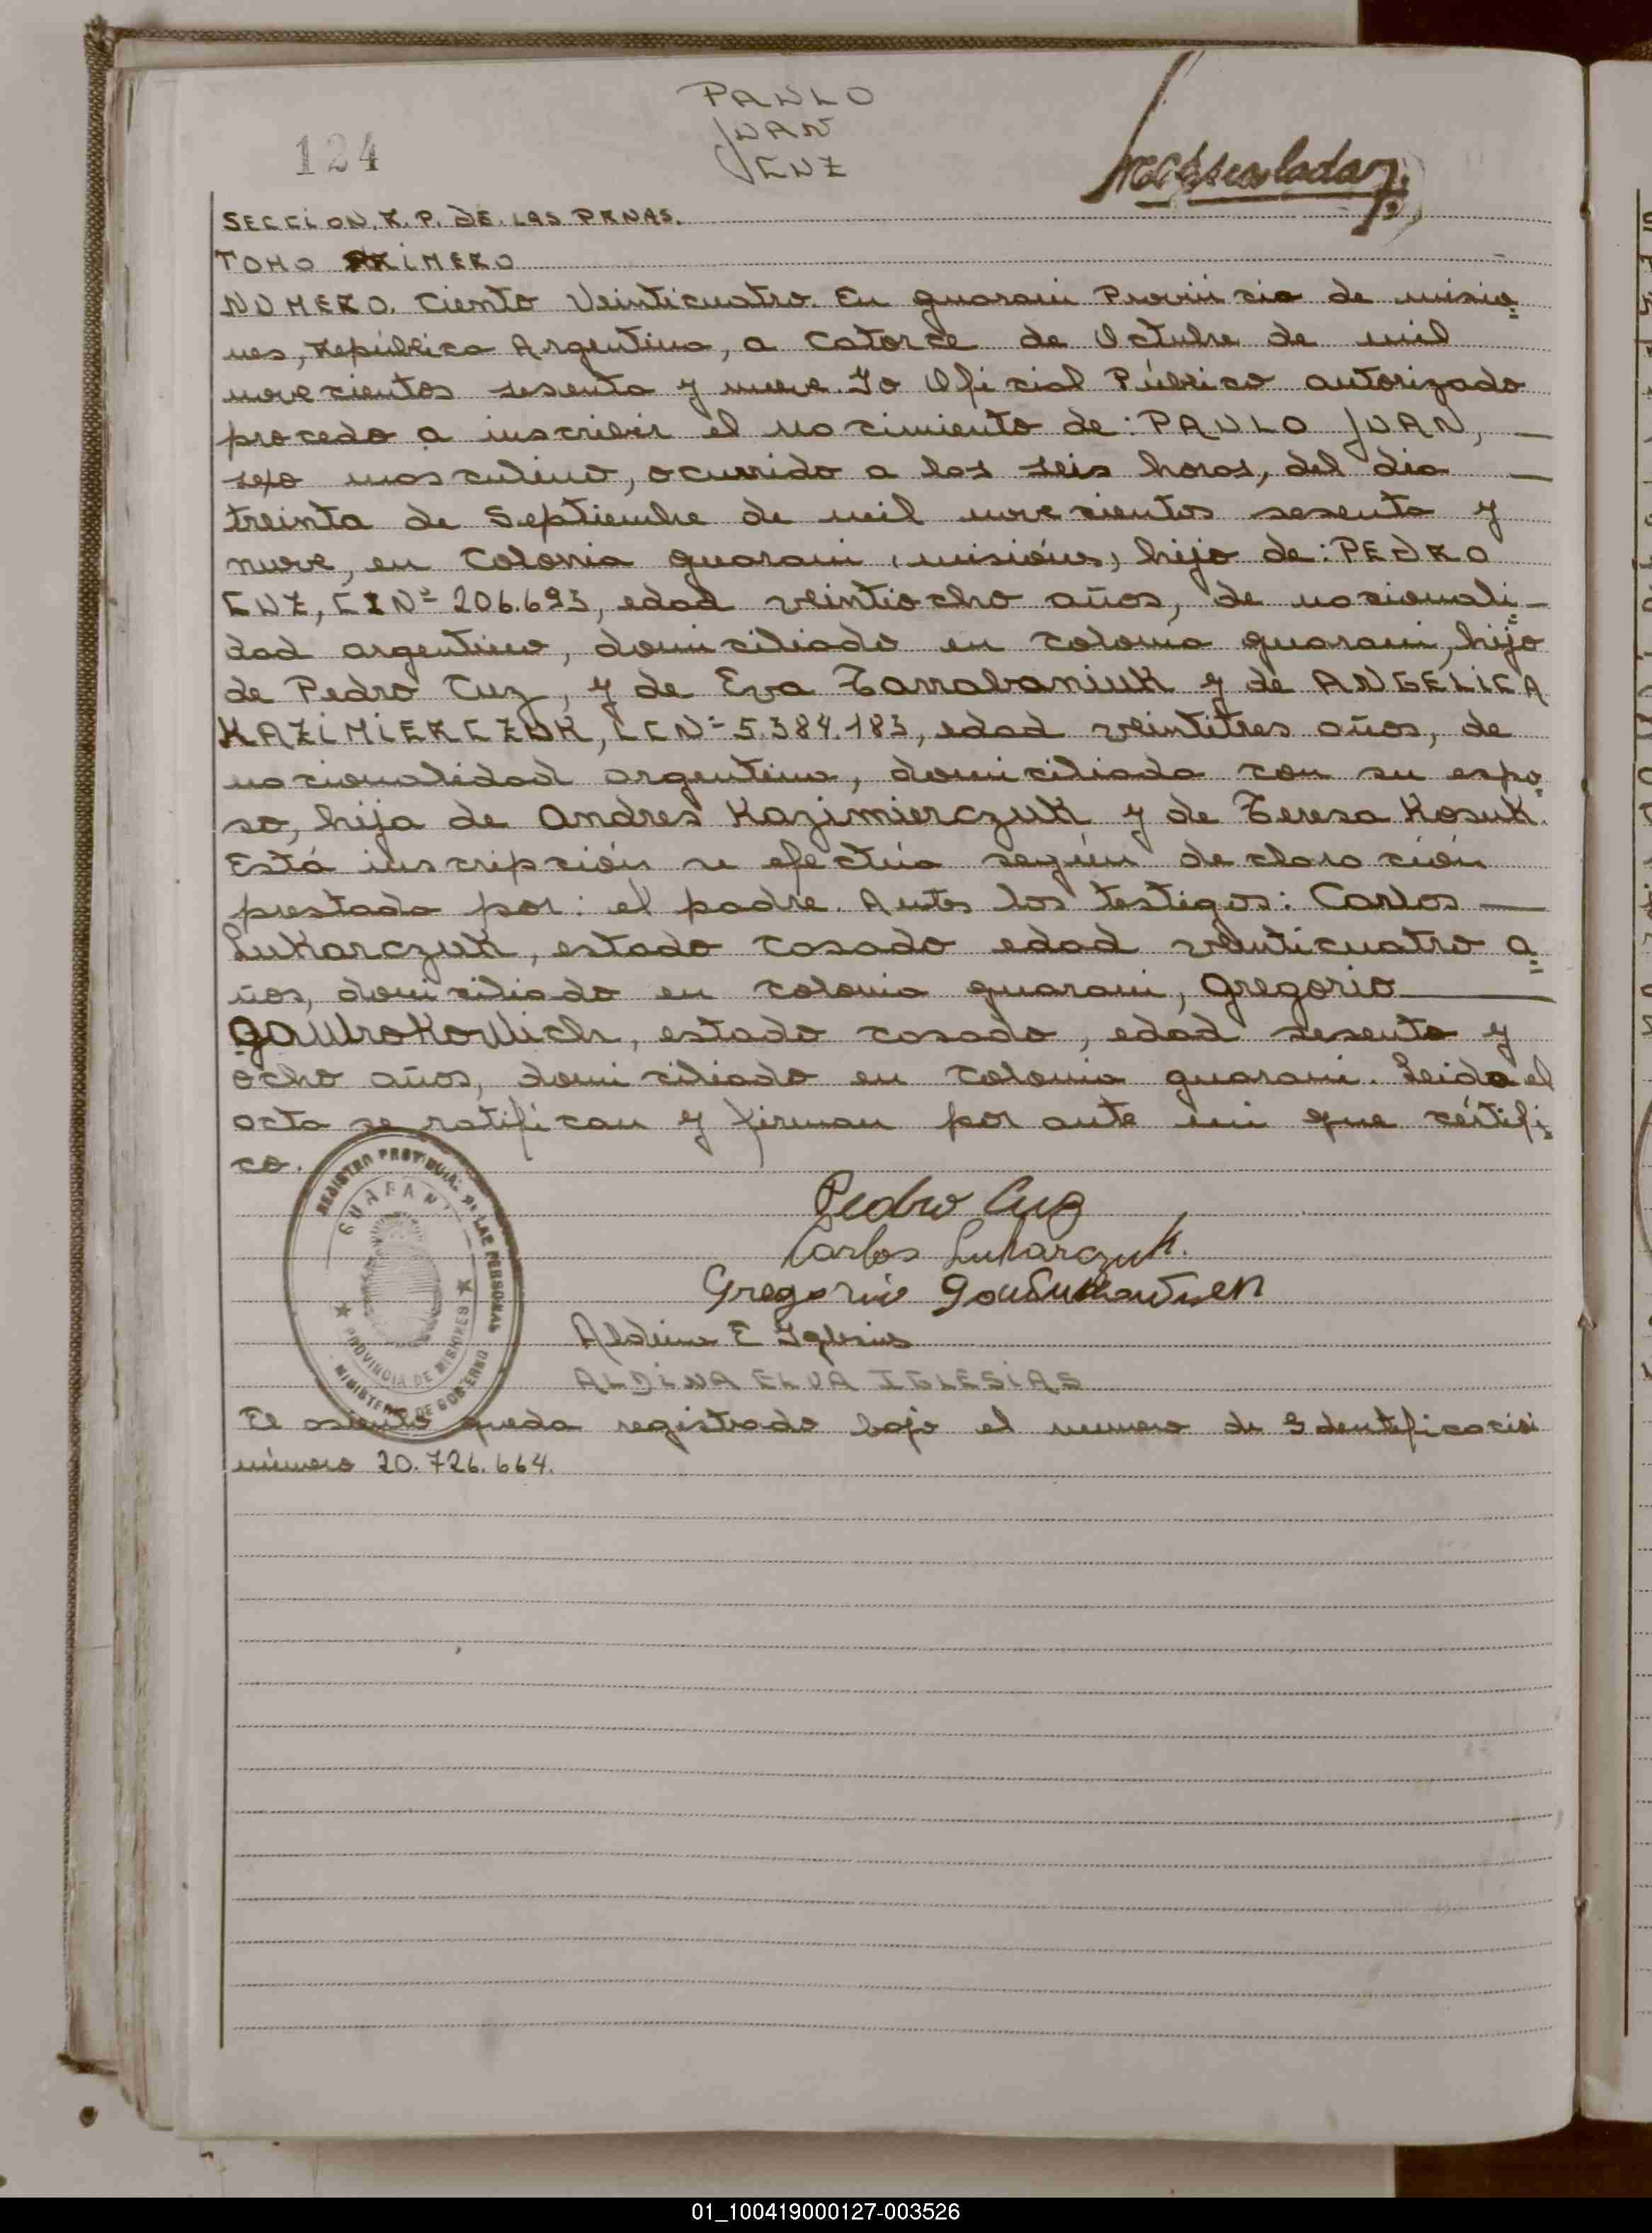 PAULO
JUAN
CUZ
124
SECCION. R. P. DE. LAS PRNAS.
TOMO PRIMERO
NUMERO. Ciento Veinticuatro. En guarani Provincia de misio=
nes, República Argentina, a Catorce de Octubre de mil
novecientos sesenta y nueve. Yo Oficial Público autorizado
procedo a inscribir el nacimiento de: PAULO JUAN, —
sexo masculino, ocurrido a las seis horas, del dia —
treinta de Septiembre de mil novecientos sesenta y
nueve, en Colonia guarani, misiónes, hijo de: PEDRO
CUZ, CIN= 206.693, edad veintiocho años, de nacionali=
dad argentino, domiciliado en colonia guarani, hijo
de Pedro Cuz, y de Eva Tarrabaniuk y de ANGELICA
KAZIMIERCZUK, LCN= 5.384.183, edad veintitres años, de
nacionalidad argentina, domiciliada con su espo=
so, hija de Andres Kazimierczuk y de Teresa Kosuk.
Está inscripción se efectúa según declaración
prestada por: el padre. Antes los testigos: Carlos —
Lukarczuk, estado casado edad veinticuatro a=
ños, domiciliado en colonia guarani, Gregorio —
Gawrokowich, estado casado, edad sesenta y
ocho años, domiciliado en colonia guarani. Leida el
acta se ratifican y firman por ante mi que certifi=
co.
REGISTRO PROVINCIAL DE LAS PERSONAS
GUARANI
PROVINCIA DE MISIONES
MINISTERIO DE GOBIERNO
Pedro Cuz
Carlos Lukarczuk.
Gregorio
Aldina E Iglesias
ALDINA ELVA IGLESIAS
El asiento queda registrado bajo el numero de Identificación
número 20.726.664.
01_100419000127-003526